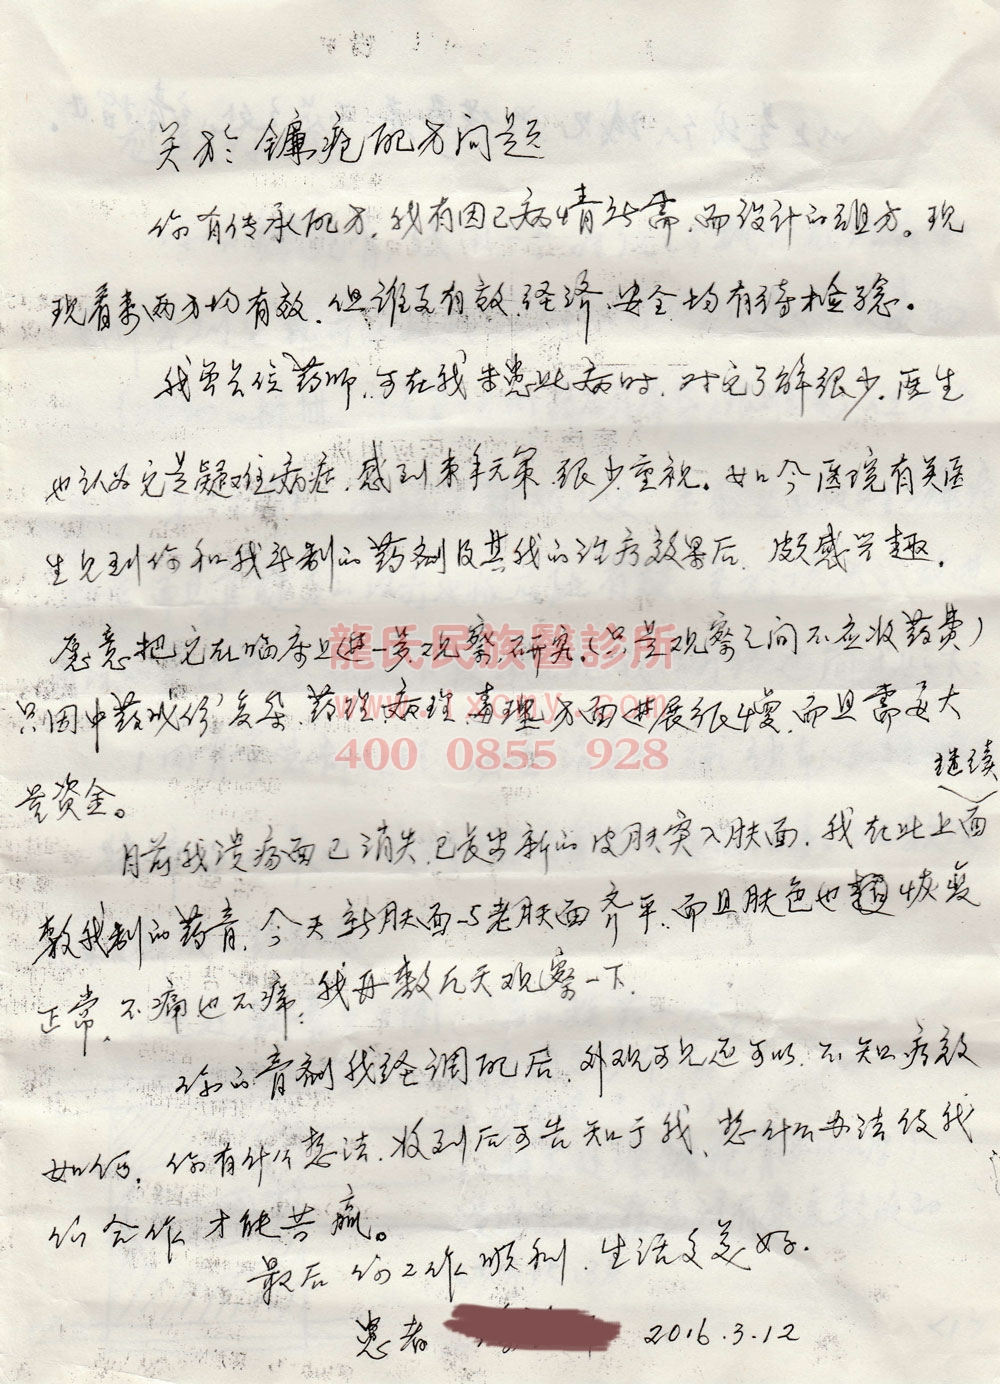 关於镰疮配方问题
你有传承配方,我有因己病情所需,而设计的组方。现
现看来两方均有效,但谁更有效,经济,安全均有待检验。
我曾是位药师,可在我未患此病时,对它了解很少,医生
也认为它是疑难病症,感到束手无策,很少重视。如今医院有关医
生见到你和我所制的药剂及其我的治疗效果后,颇感兴趣。
愿意把它在临床上进一步观察,研究,(只是观察之间不应收药费)
龍氏民族醫診所
只因中药成份复杂,药理病理毒理方面进展很慢,而且需要大
400 0855 928
量资金。
目前我溃疡面已消失,已长出新的皮肤突入肤面,我在此上面继续
敷我制的药膏,今天新肤面与老肤面齐平,而且肤色也恢复
正常,不痛也不痒,我再敷几天观察一下,
你的膏剂我经调配后,外观可见还可以,不知疗效
如何,你有什么想法,收到后可告知于我,想什么办法使我
们合作才能共赢。
最后 你工作顺利,生活美好.
患者 2016.3.12